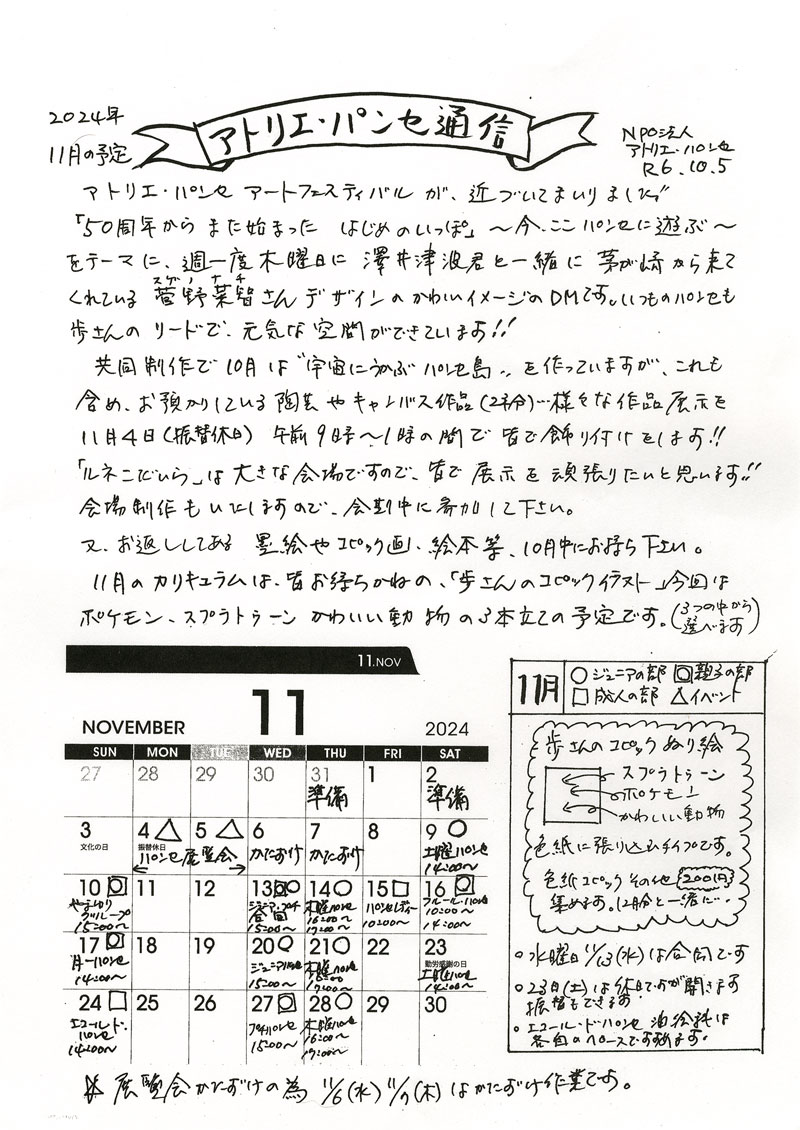 2024年
11月の予定
アトリエ・パンセ通信
NPO法人
アトリエ・パンセ
R6.10.5
アトリエ・パンセ アートフェスティバル が、近づいてまいりました
「50周年から また始まった はじめのいっぽ」〜今、ここ パンセに遊ぶ〜
をテーマに、週一度木曜日に 澤井津波君と一緒に 茅が崎から来て
スゲノ ナチ
くれている 菅野菜智さん デザインの かわいイメージの DMです。いつものパンセも
歩さんの リードで、元気な空間ができています!!
共同制作で 10月は "宇宙にうかぶ パンセ島" を作っていますが、これも
含め、お預かりしている 陶芸や キャンバス作品 様々な作品展示を
11月4日(振替休日) 午前9時〜1時の間で 皆で飾り付けをします!!
「ルネこだいら」は 大きな会場ですので、皆で 展示を 頑張りたいと思います!!
会場制作も いたしますので、会期中に参加して下さい。
又、お返ししてある 墨絵や コピック画、絵本等、10月中にお持ち下さい。
11月の カリキュラムは、皆お待ちかねの、「歩さんのコピックイラスト」今回は
ポケモン、スプラトゥーン かわいい動物 の3本立ての予定です。(3つの中から
選べます)
11.NOV
11
NOVEMBER 2024
SUN MON TUE WED THU FRI SAT
27 28 29 30 31 1 2
準備 準備
3 4△ 5△ 6 7 8 9○
文化の日 振替休日
パンセ展覧会 かたずけ かたずけ 土曜パンセ
14:00〜
10 11 12 13 14○ 15□ 16
やまゆり
グループ
15:00〜
ジュニア・プチ
合同
15:00〜
木曜パンセ
16:00〜
17:00〜
パンセレディー
10:00〜
フルール・パンセ
10:00〜
14:00〜
17 18 19 20○ 21○ 22 23
勤労感謝の日
月一パンセ
14:00〜
ジュニアパンセ
15:00〜
木曜パンセ
17:00〜
土曜パンセ
14:00〜
24□ 25 26 27 28○ 29 30
エコールド・
パンセ
14:00〜
プチパンセ
15:00〜
木曜パンセ
16:00〜
17:00〜
11月
○ジュニアの部 親子の部
□成人の部 △イベント
歩さんのコピック ぬり絵
スプラトゥーン
ポケモン
かわいい動物
色紙に張り込むタイプです。
色紙コピックその他 200円
集めます。12月分と一緒に…
○水曜日 11/13(水)は合同です
○23日(土)は休日ですが開きます
振替もできます!
○エコール・ド・パンセ 油絵科は
各自のペースですすめます。
☆展覧会かたずけの為 11/6(水) 11/7(木)はかたずけ作業です。